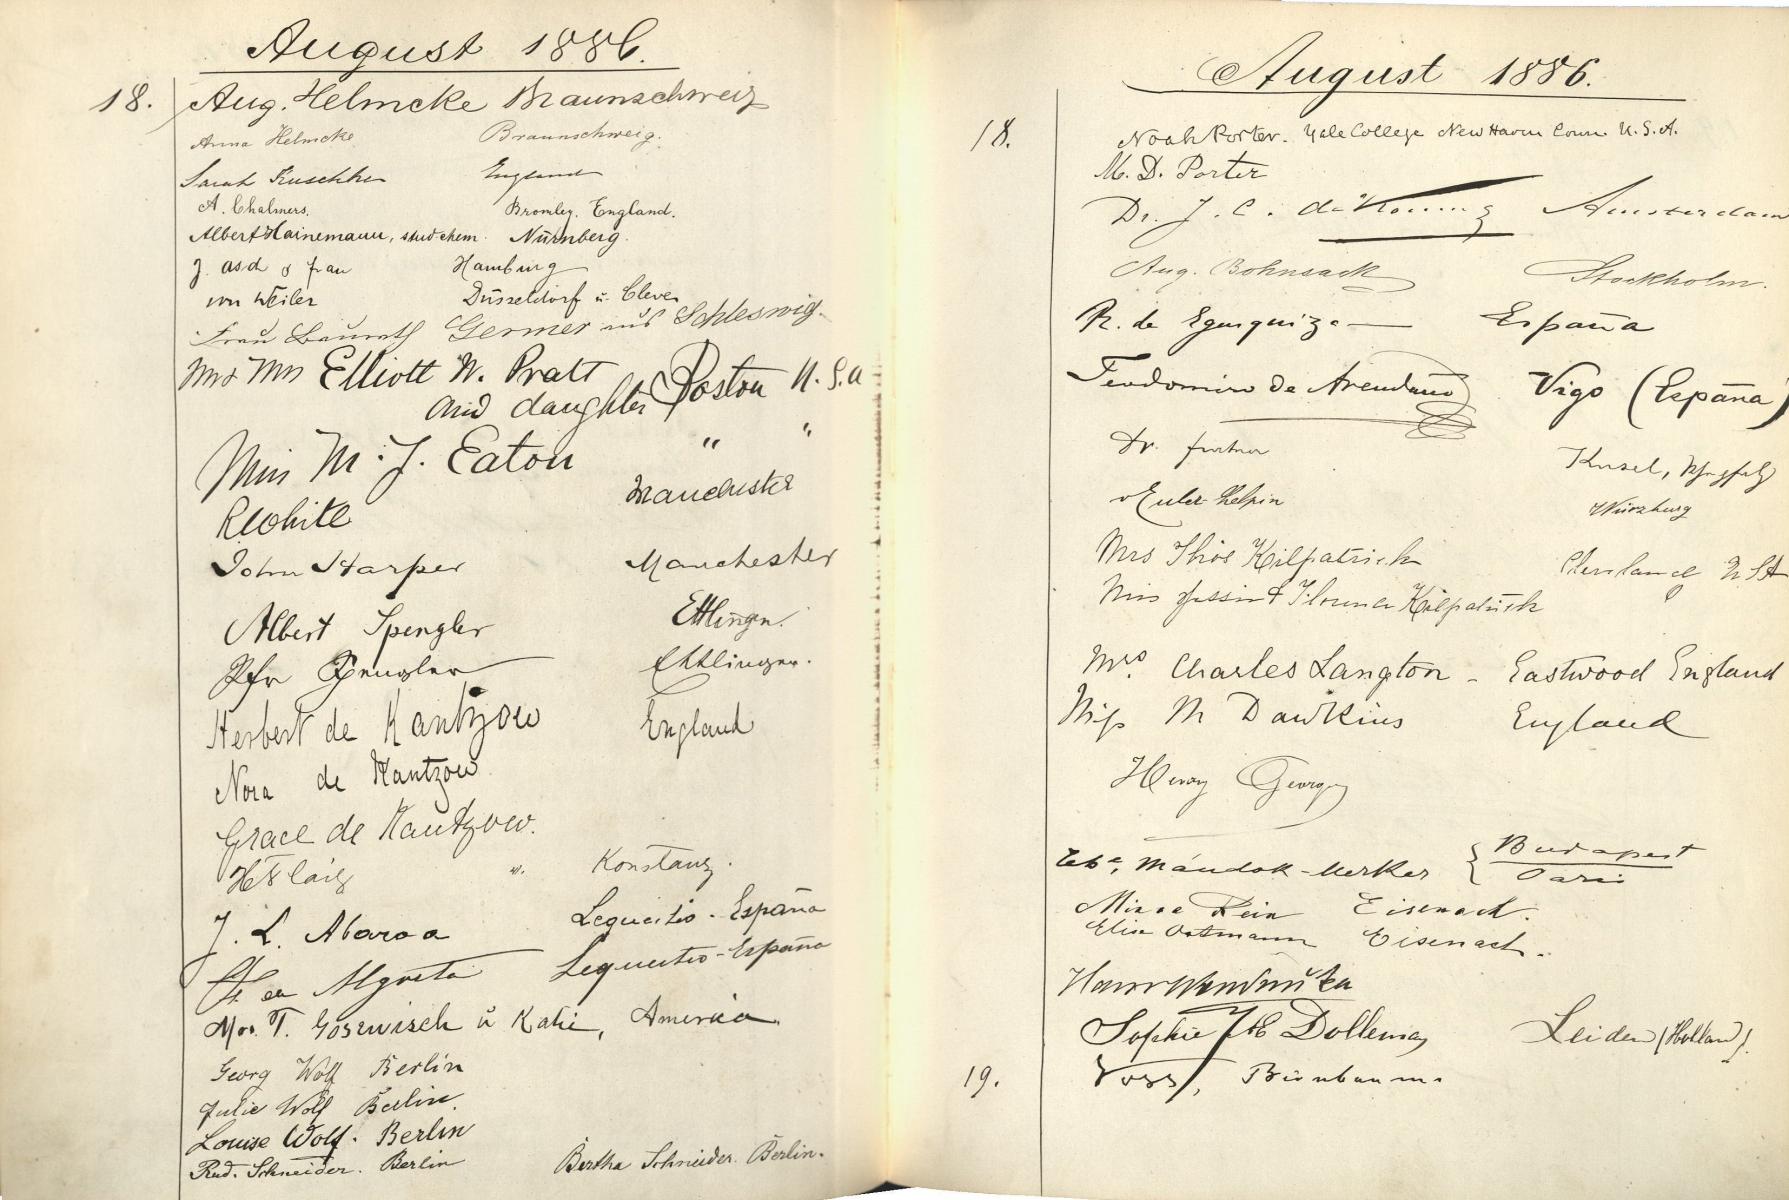 August 1886.
18. Aug. Helmcke Braunschweig
Anna Helmcke Braunschweig.
Sarah England
A. Chalmers. Bromley. England.
Albert Hainemann, stud. chem. Nürnberg.
J. & frau Hamburg
von Weiler Düsseldorf u. Cleve
Frau Baurath Germer aus Schleswig.
Mr & Mrs Elliott W. Pratt
and daughter Boston U.S.A
Miss M. J. Eaton " "
R White Manchester
John Harper Manchester
Albert Spengler Ettlingen.
Spengler Ettlingen.
Herbert de Kantzow England
Nora de Kantzow
Grace de Kantzow.
Konstanz.
J. L. Abaroa Lequeitio - España
Lequeitio - España
Mrs. T. Goszwisch u Katie, America
Georg Wolf Berlin
Julie Wolf Berlin.
Louise Wolf. Berlin
Rud. Schneider. Berlin Bertha Schneider. Berlin.
August 1886.
18. Noah Porter. Yale College New Haven Conn. U.S.A.
M. D. Porter
Dr. J. C. de Koning Amsterdam
Aug. Bohnsack Stockholm.
R. de Egusquiza — España
Teodomiro de Avendaño Vigo (España)
Dr. Kusel,
v Euler-Chelpin Würzburg
Mrs Thos Kilpatrick Cleveland USA
Miss Jessie & Florence Kilpatrick
Mrs. Charles Langton - Eastwood England
Miss M Dawkins England
Henry George
Mándok-Merker { Budapest
Paris
Minna Rein Eisenach.
Elise Ostmann Eisenach.
Sophie Dollema Leiden (Holland).
19. Voss, Birnbaum.